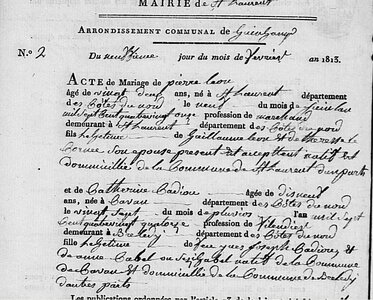 MAIRIE de St Laurent
ARRONDISSEMENT COMMUNAL de Guingamp
N.° 2 Du neufvième jour du mois de Février an 1813.
ACTE de Mariage de pierre Leon
âgé de vingt deux ans, né à St Laurent département
des Côtes du nord le neuf du mois de
mil Sept Cent quatre vingt onze profession de
demeurant à St Laurent département des Côtes du nord
fils légitime de Guillaume Leon et de
son épouse present et acceptant natif et
domicillié de la Commune de St Laurent d'une part
et de Catherine Cadiou âgée de
ans, née à Cavan département des Côtes du nord
le vingt Sept du mois de l'an mil Sept
Cent quatre vingt quatorze profession de filandier
demeurant à département des Côtes du nord
fille légitime de Yves Joseph Cadiou et
de anne natifs de la Commune
de Cavan et domicillié de la Commune de
d'autre part
Les publications ordonnées par l'article